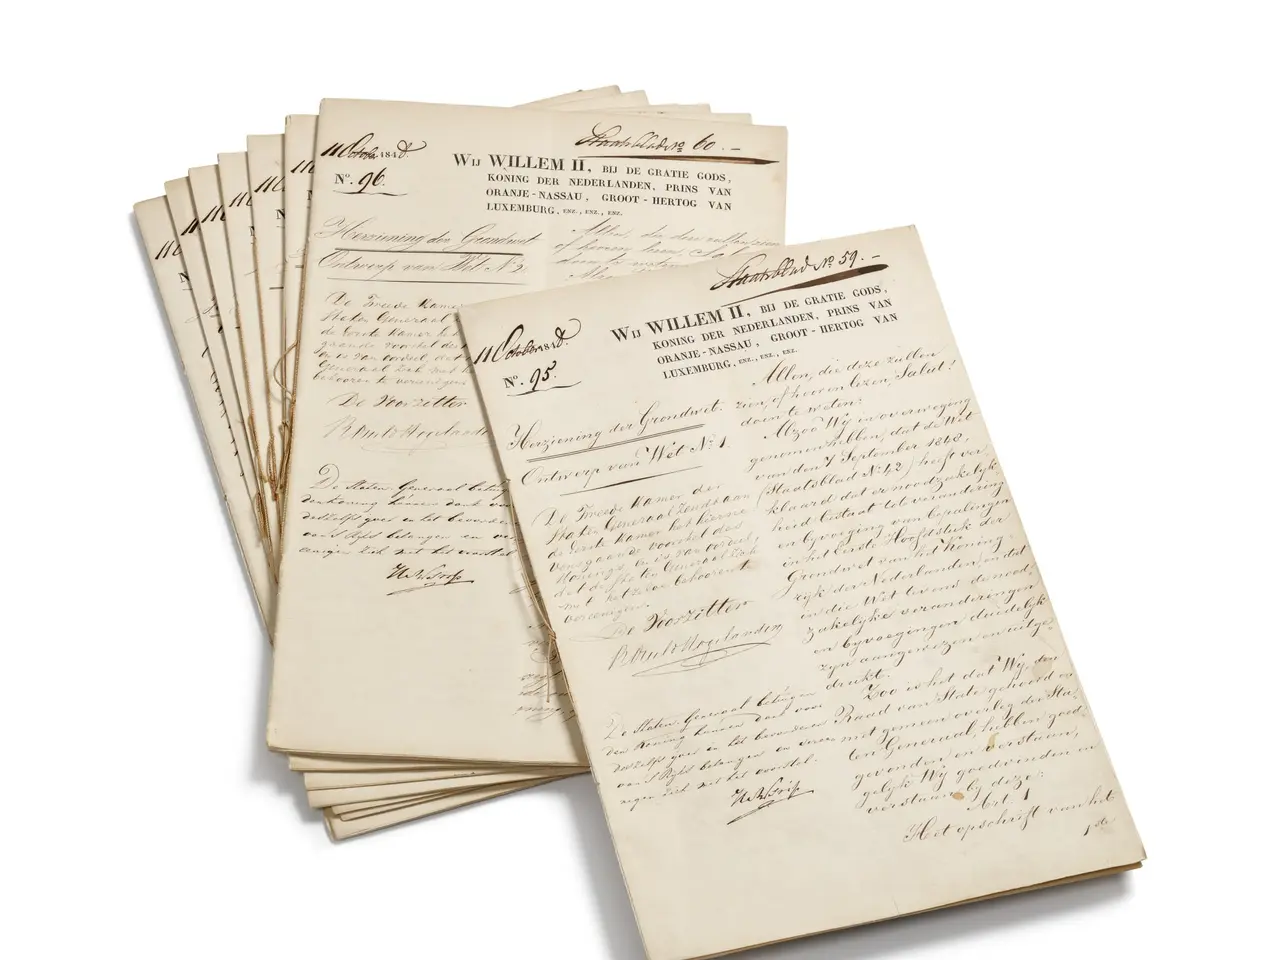 11 October 1848.
Nº. 96.
Staatsblad Nº 60. –
WIJ WILLEM II, BIJ DE GRATIE GODS,
KONING DER NEDERLANDEN, PRINS VAN
ORANJE-NASSAU, GROOT-HERTOG VAN
LUXEMBURG, ENZ., ENZ., ENZ.
Herziening der Grondwet
Ontwerp van Wet Nº 2
Allen, die deze zullen zien
of hooren lezen, Salut
De Tweede Kamer
Staten Generaal
de Eerste Kamer het
en is van oordeel, dat
Generaal zich met het
behooren te vereenigen
De Voorzitter
De Staten Generaal betuig
den Koning hunnen dank voor
deszelfs ijver in het bevorderen
van 's Rijks belangen en ver
eenigen zich met het voorstel
11 October 1848.
Nº. 95.
Staatsblad Nº 59. –
WIJ WILLEM II, BIJ DE GRATIE GODS,
KONING DER NEDERLANDEN, PRINS VAN
ORANJE-NASSAU, GROOT-HERTOG VAN
LUXEMBURG, ENZ., ENZ., ENZ.
Herziening der Grondwet.
Ontwerp van Wet Nº 1.
De Tweede Kamer der
Staten Generaal zendt aan
de Eerste Kamer het hierne
vensgaande voorstel des
Konings en is van oordeel,
dat de Staten Generaal zich
met hetzelve behooren te
vereenigen.
De Voorzitter
De Staten-Generaal betuigen
den Koning hunnen dank voor
deszelfs ijver in het bevorderen
van 's Rijks belangen en veree
nigen zich met het voorstel.
Allen, die deze zullen
zien, of hooren lezen, Salut!
doen te weten:
Alzoo Wij in overweging
genomen hebben, dat de Wet
van den 7 September 1848,
(Staatsblad Nº 42) heeft ver-
klaard dat er noodzakelijk-
heid bestaat tot verandering
en bijvoeging van bepalingen
in het Eerste Hoofdstuk der
Grondwet van het Konink-
rijk der Nederlanden, en dat
in die Wet tevens de nood-
zakelijke veranderingen
en bijvoegingen duidelijk
zijn aangewezen en uitge-
drukt.
Zoo is het dat Wij, den
Raad van State gehoord en
met gemeen overleg der Sta-
ten Generaal, hebben goed-
gevonden en verstaan,
gelijk Wij goedvinden en
verstaan bij deze:
Art. 1
Het opschrift van het
1ste